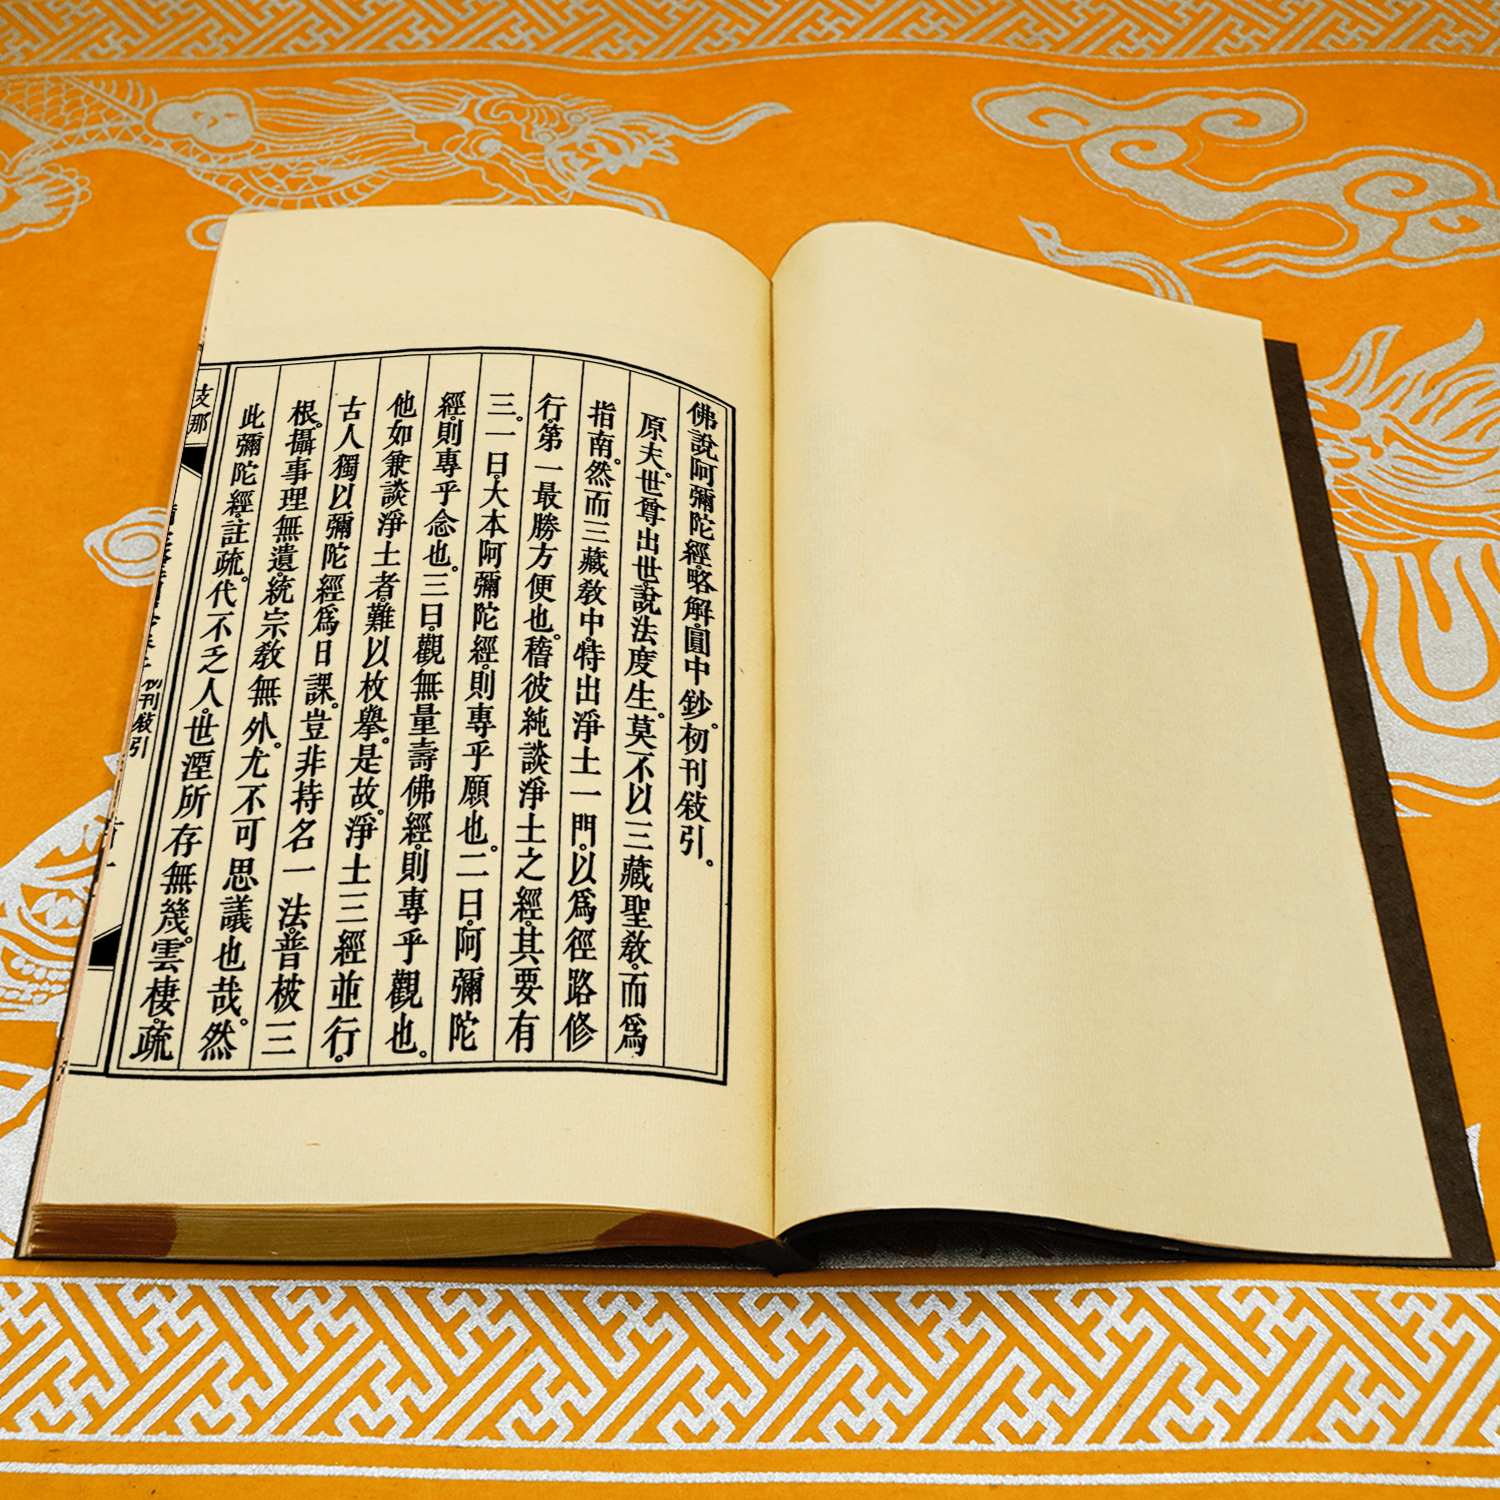 佛說阿彌陀經略解圓中鈔。初刊敍引。
原夫。世尊出世。說法度生。莫不以三藏聖教。而爲
指南。然而三藏教中。特出淨土一門。以爲徑路修
行。第一最勝方便也。稽彼純談淨土之經。其要有
三。一曰。大本阿彌陀經。則專乎願也。二曰。阿彌陀
經。則專乎念也。三曰。觀無量壽佛經。則專乎觀也。
他如兼談淨土者。難以枚擧。是故。淨土三經並行。
古人獨以彌陀經爲日課。豈非持名一法。普被三
根。攝事理無遺。統宗教無外。尤不可思議也哉。然
此彌陀經。註疏。代不乏人。世湮所存無幾。雲棲。疏
支那
初刊敍引